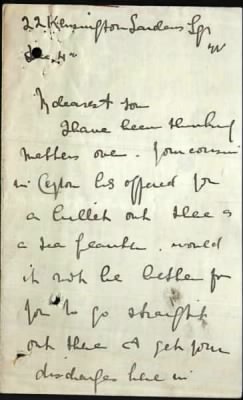 22 Kensington Gardens Sqr
W
Dec. 4th
My dearest son
I have been thinking
matters over. Your cousin
in Ceylon has offered you
a billet out there as
a tea planter. would
it not be better for
you to go straight
out there & get your
discharge here in